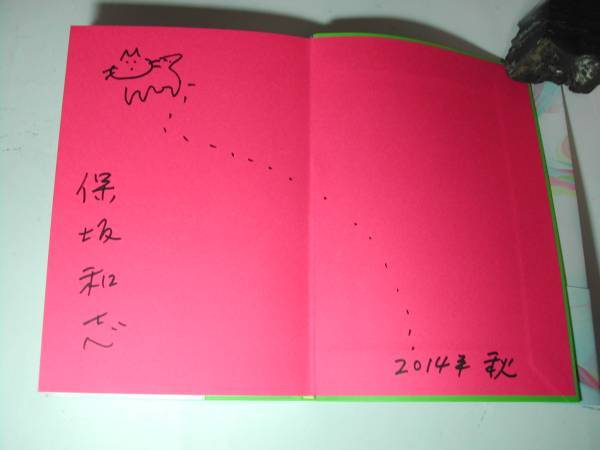 保坂和志
2014年 秋